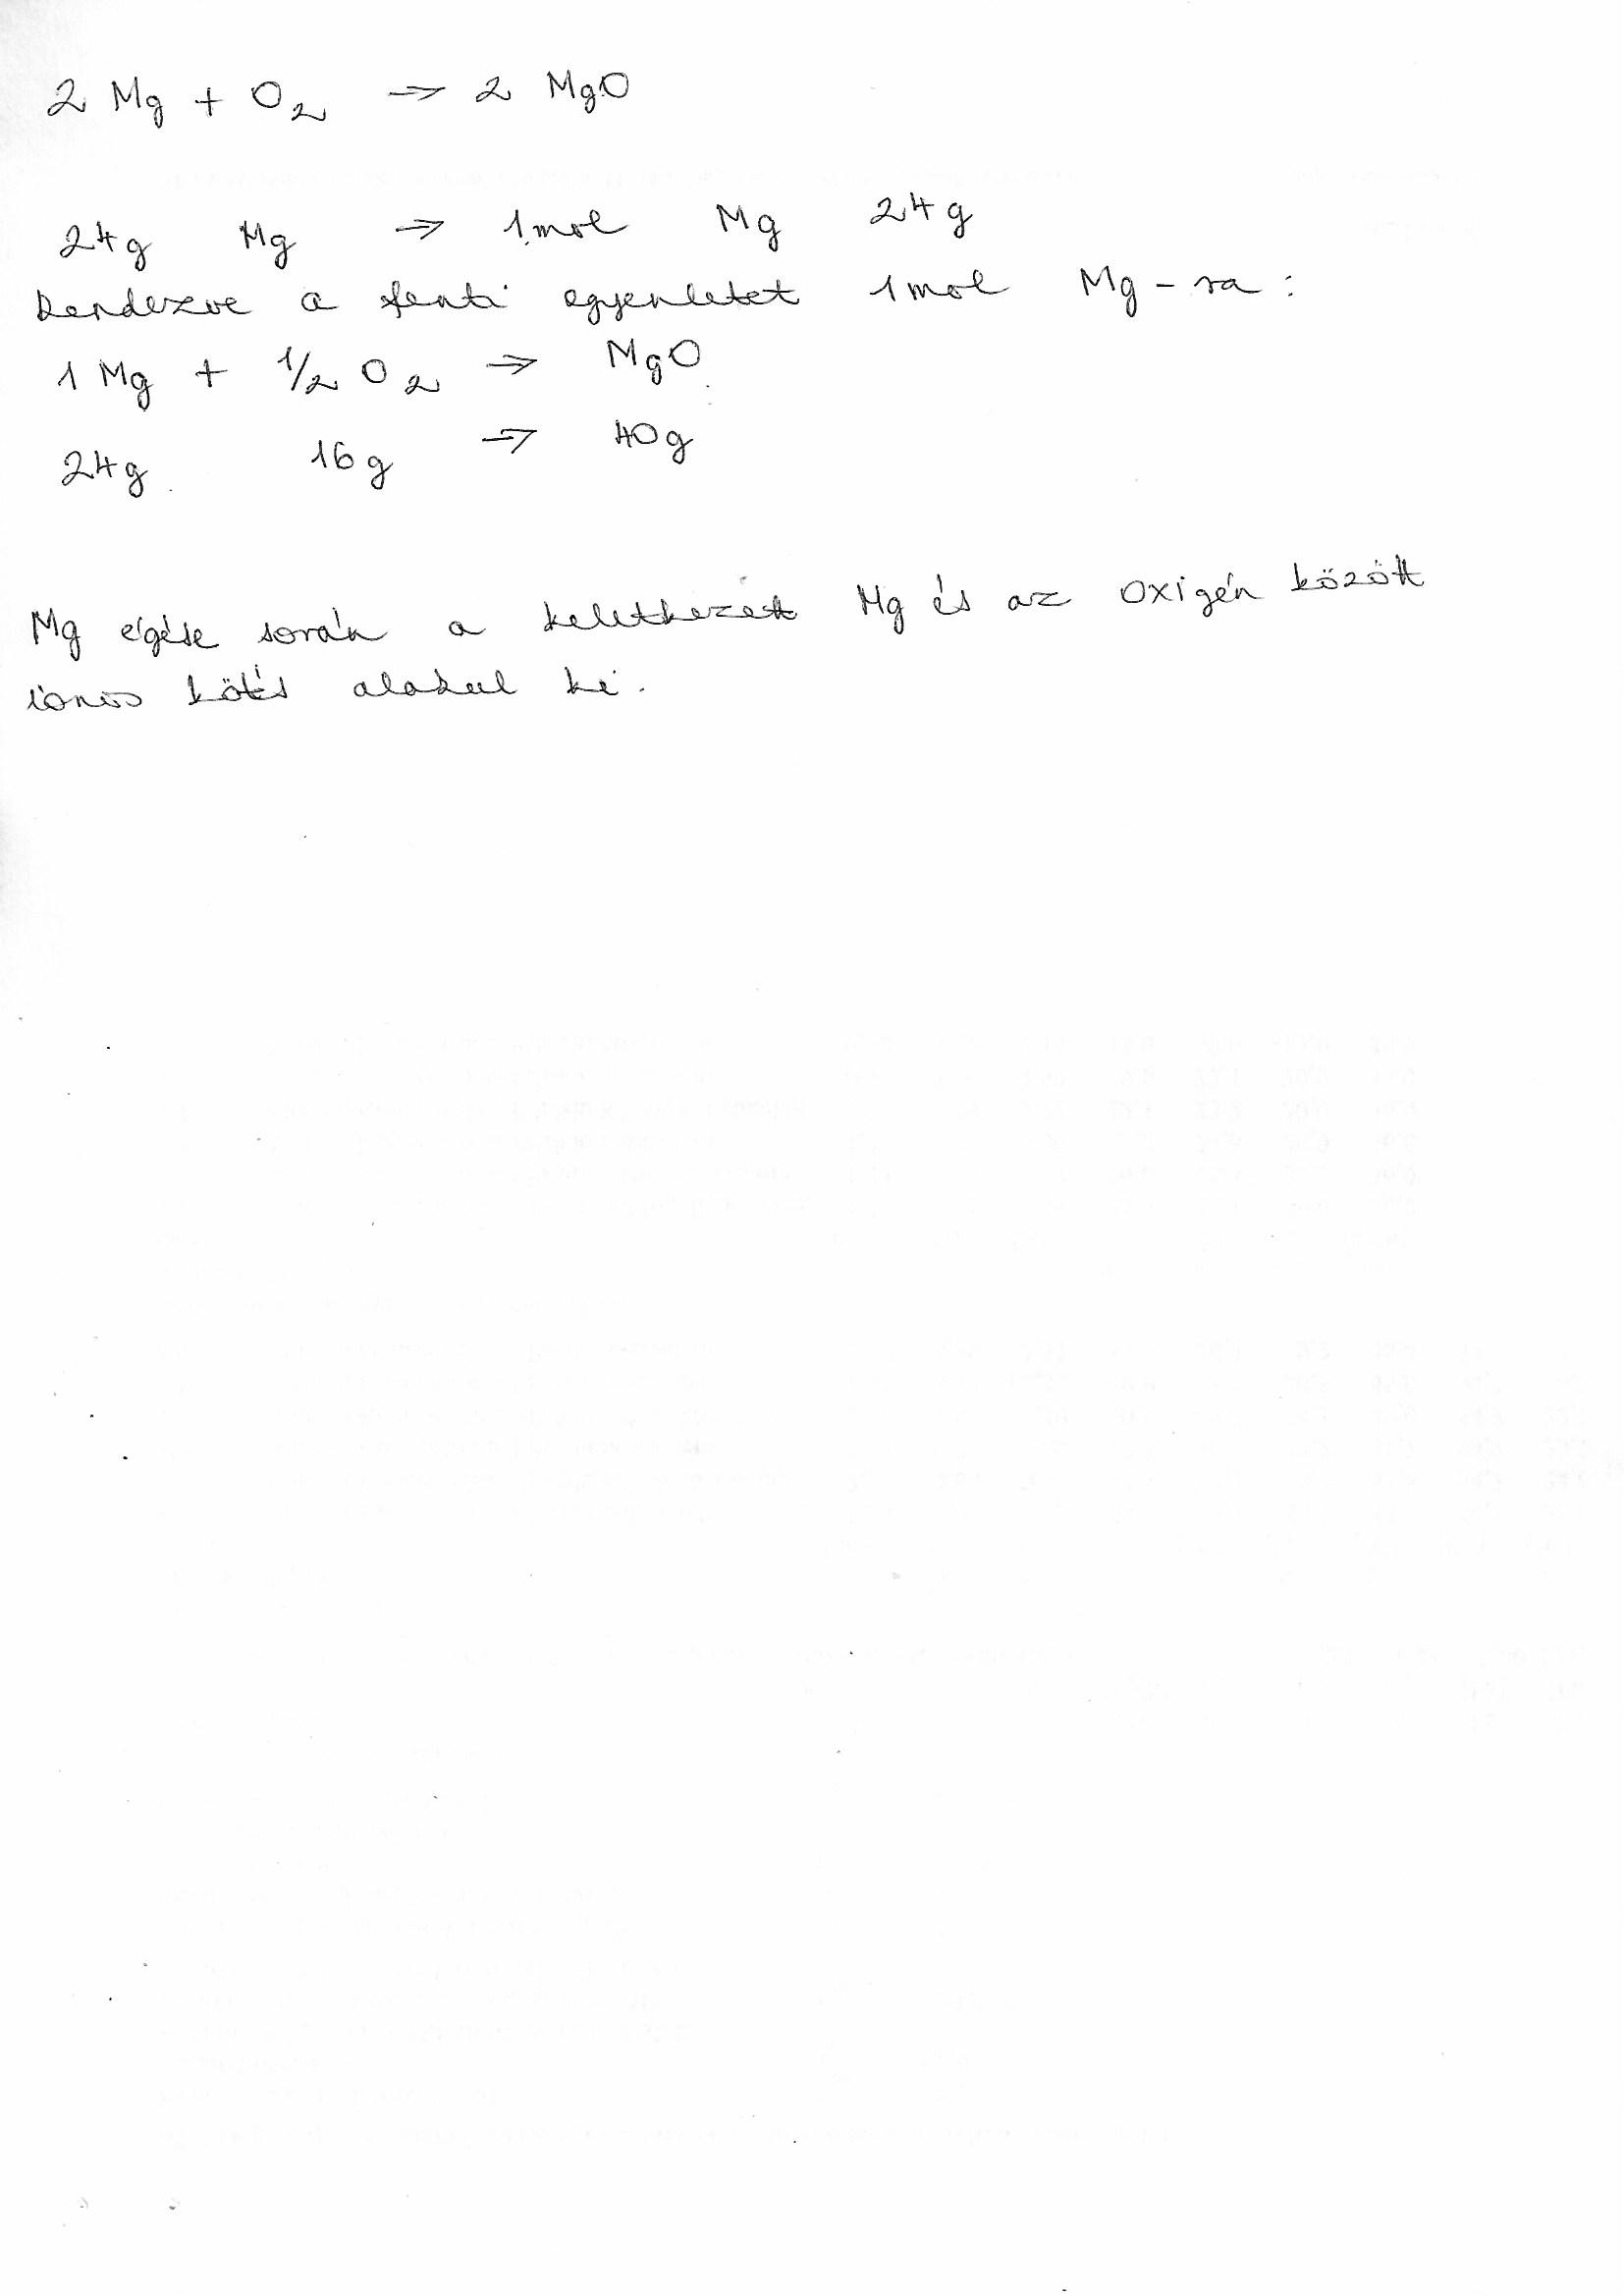 2 Mg + O2 → 2 MgO
24g Mg → 1mol Mg 24g
Rendezve a fenti egyenletet 1mol Mg-ra:
1 Mg + 1/2 O2 → MgO
24g 16g → 40g
Mg égése során a keletkezett Mg és az oxigén között
ionos kötés alakul ki.